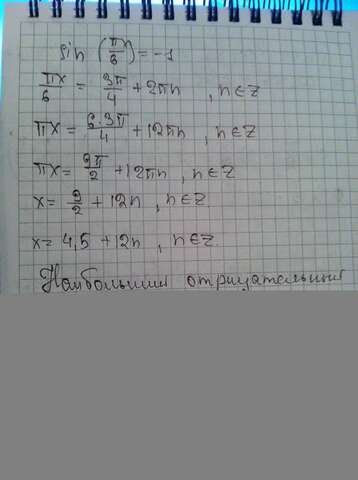 sin (πx/6) = -1
πx/6 = 3π/4 + 2πn , n∈Z
πx = 6·3π/4 + 12πn , n∈Z
πx = 9π/2 + 12πn , n∈Z
x = 9/2 + 12n , n∈Z
x = 4,5 + 12n , n∈Z.
Наибольший отрицательный